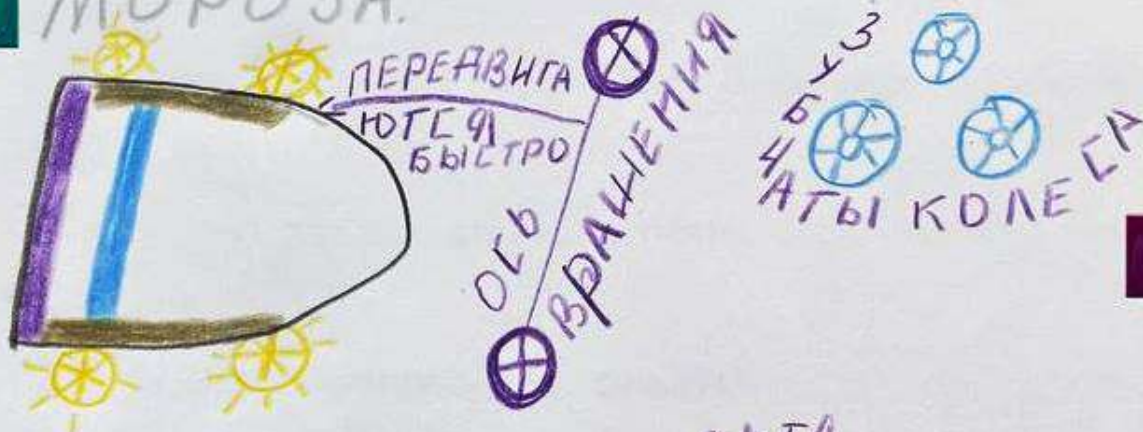 МОРОЗА.
ПЕРЕДВИГА
ЮТСЯ
БЫСТРО
ОСЬ
ВРАЩЕНИЯ
ЗУБЧАТЫ КОЛЕСА